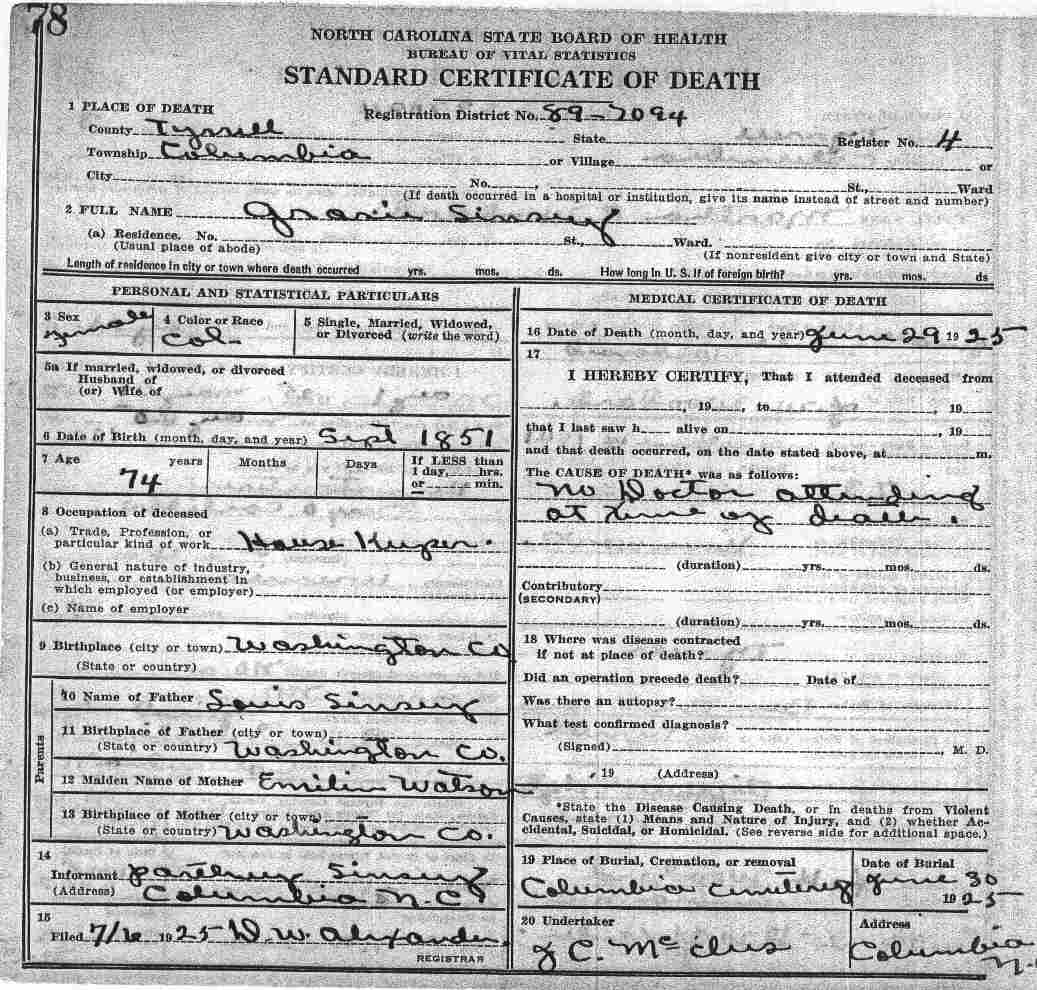 78
NORTH CAROLINA STATE BOARD OF HEALTH
BUREAU OF VITAL STATISTICS
STANDARD CERTIFICATE OF DEATH
1 PLACE OF DEATH Registration District No. 89-2094
County Tyrrell State Register No. 4
Township Columbia or Village or
City No. , St., Ward
(If death occurred in a hospital or institution, give its name instead of street and number)
2 FULL NAME
(a) Residence. No. St., Ward.
(Usual place of abode) (If nonresident give city or town and State)
Length of residence in city or town where death occurred yrs. mos. ds. How long in U. S. if of foreign birth? yrs. mos. ds
PERSONAL AND STATISTICAL PARTICULARS
3 Sex 4 Color or Race 5 Single, Married, Widowed,
female Col. or Divorced (write the word)
5a If married, widowed, or divorced
Husband of
(or) Wife of
6 Date of Birth (month, day, and year) Sept 1851
7 Age years Months Days If LESS than
1 day, hrs.
74 or min.
8 Occupation of deceased
(a) Trade, Profession, or
particular kind of work House Keeper.
(b) General nature of industry,
business, or establishment in
which employed (or employer)
(c) Name of employer
9 Birthplace (city or town) Washington Co
(State or country)
Parents
10 Name of Father Louis
11 Birthplace of Father (city or town)
(State or country) Washington Co.
12 Maiden Name of Mother Watson
13 Birthplace of Mother (city or town)
(State or country) Washington Co.
14
Informant
(Address) Columbia N.C.
15
Filed 1925 D. W. Alexander
REGISTRAR
MEDICAL CERTIFICATE OF DEATH
16 Date of Death (month, day, and year) June 29 1925
17
I HEREBY CERTIFY, That I attended deceased from
, 19 , to , 19
that I last saw h alive on , 19
and that death occurred, on the date stated above, at m.
The CAUSE OF DEATH* was as follows:
no Doctor attending
at time of death.
(duration) yrs. mos. ds.
Contributory
(SECONDARY)
(duration) yrs. mos. ds.
18 Where was disease contracted
if not at place of death?
Did an operation precede death? Date of
Was there an autopsy?
What test confirmed diagnosis?
(Signed) , M. D.
, 19 (Address)
*State the Disease Causing Death, or in deaths from Violent
Causes, state (1) Means and Nature of Injury, and (2) whether Ac-
cidental, Suicidal, or Homicidal. (See reverse side for additional space.)
19 Place of Burial, Cremation, or removal Date of Burial
Columbia June 30
1925
20 Undertaker Address
Columbia